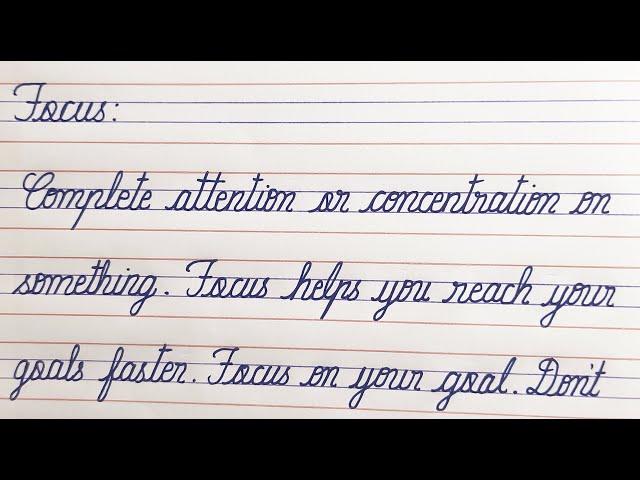 Focus:
Complete attention or concentration on
something. Focus helps you reach your
goals faster. Focus on your goal. Don't